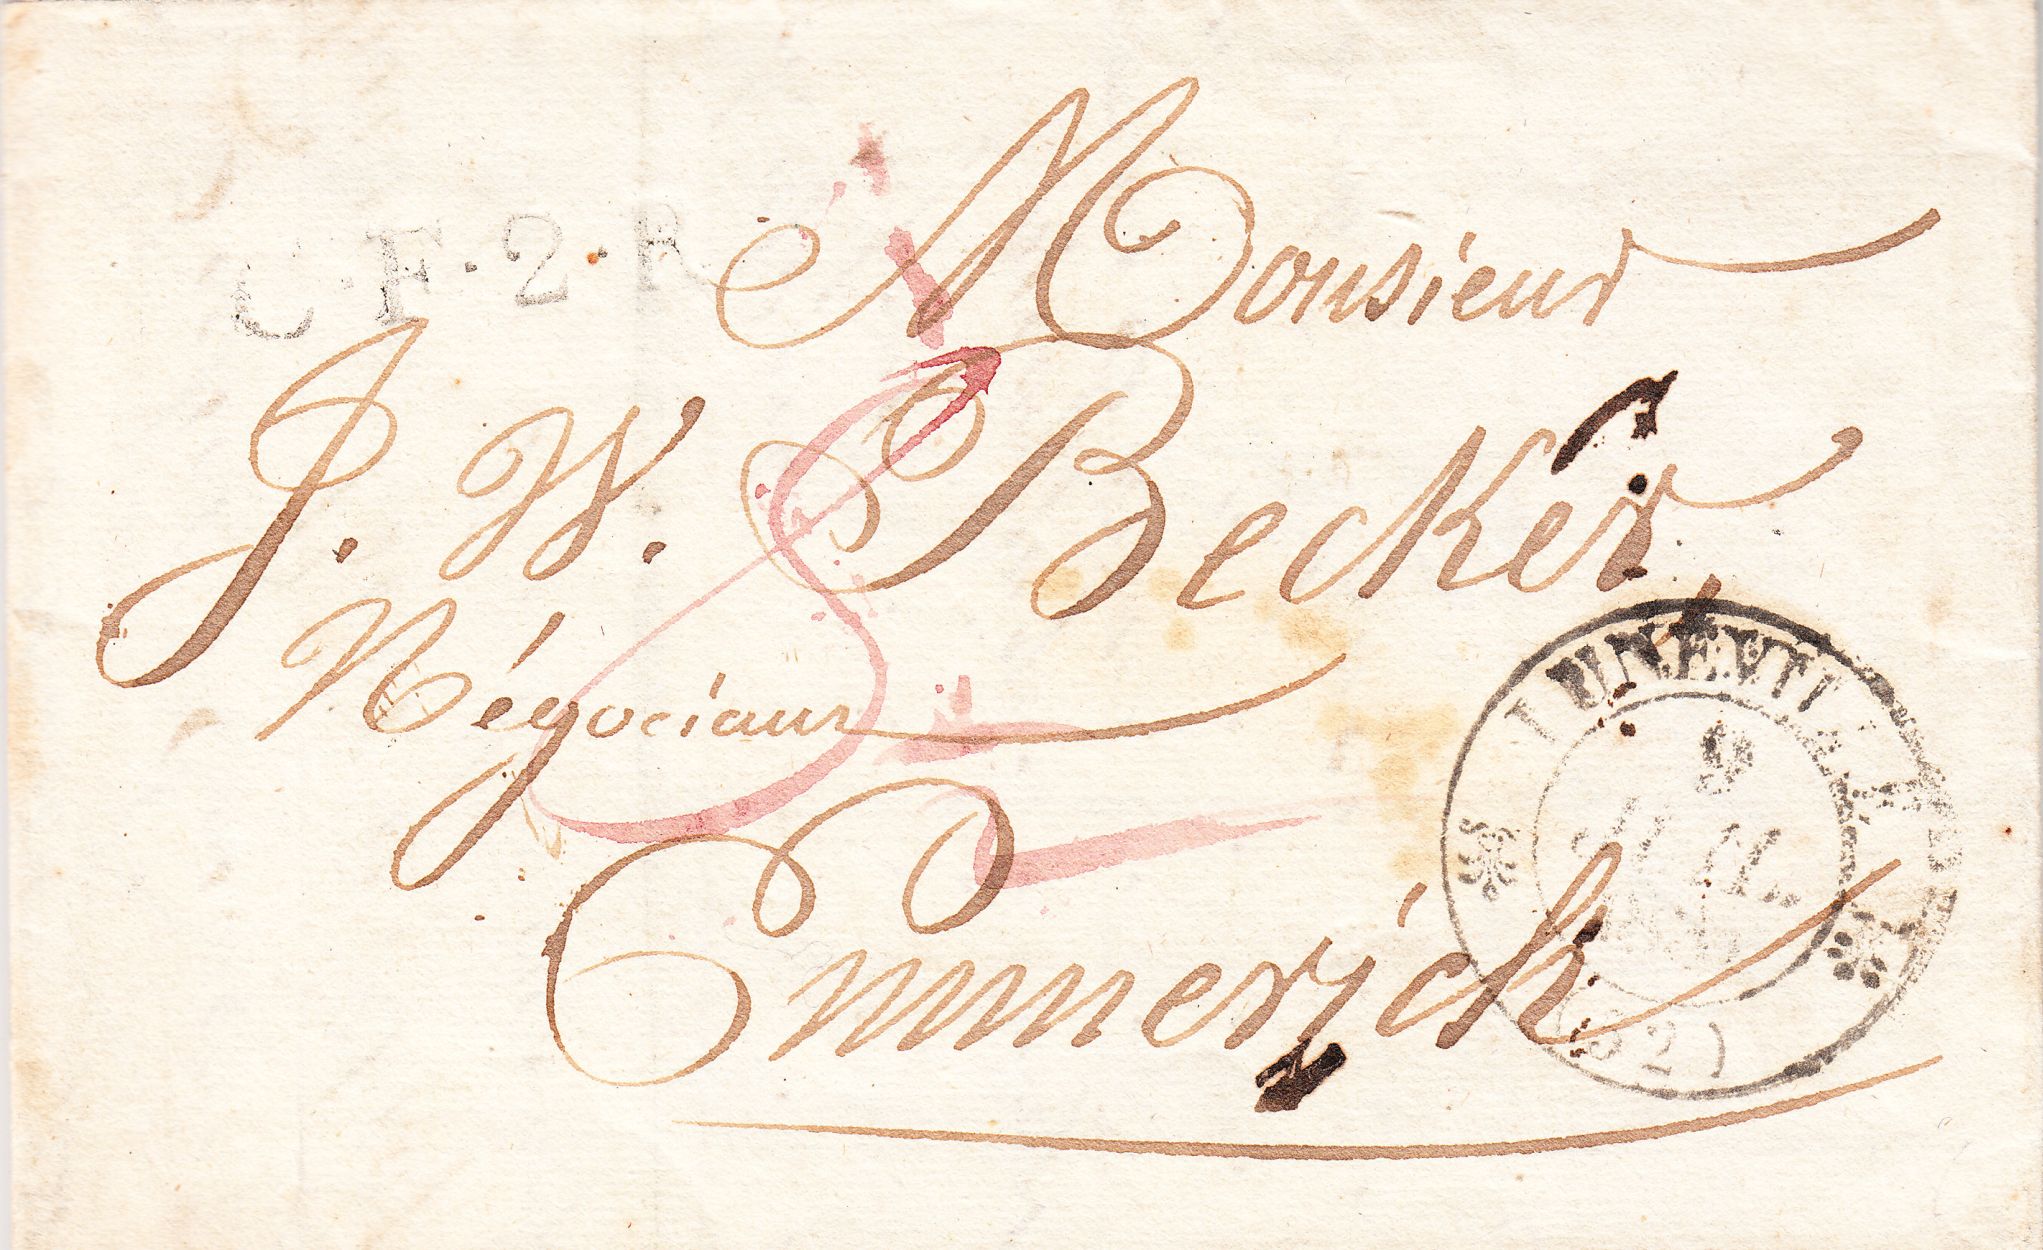 C.F.2.R
Monsieur
J. W. Becker,
Négociant
Emmerich
LUNÉVILLE
9
JUIL.
(52)